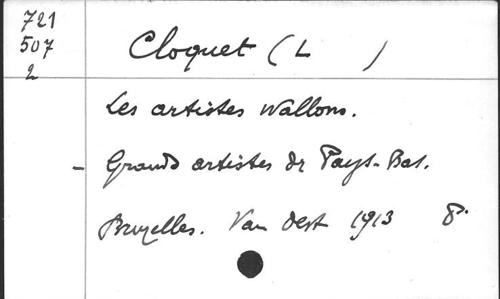 721
507
2
Cloquet (L )
Les artistes wallons.
- Grands artistes des Pays-Bas.
Bruxelles. Van Oest 1913 8º.